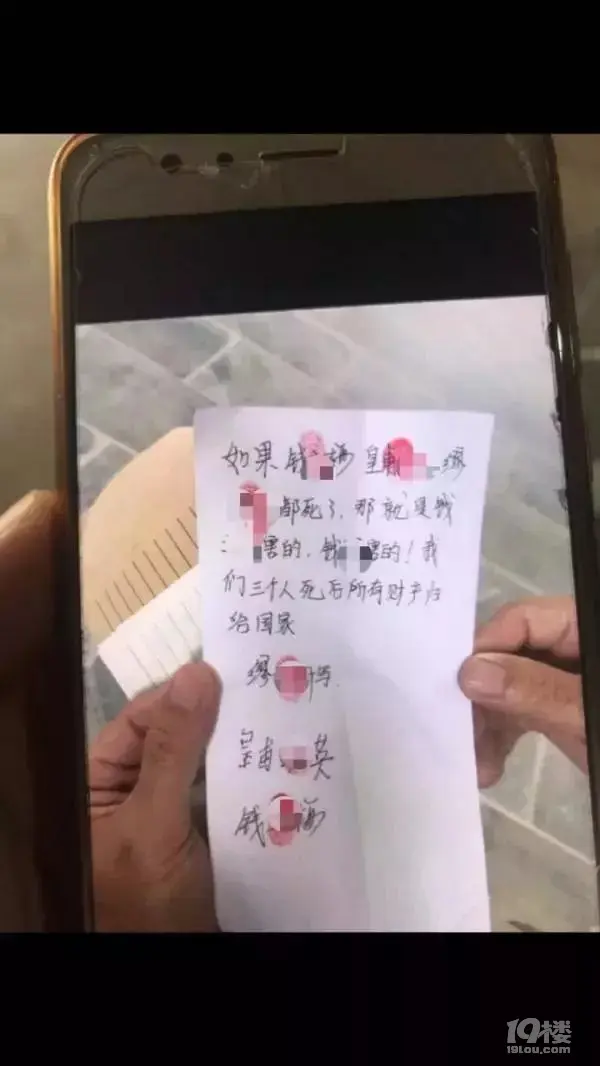 如果钱 海 皇甫 缪
都死了,那就是钱
害的,钱 害的!我
们三个人死后所有财产归
给国家
缪
皇甫 英
钱 海
19楼
19lou.com